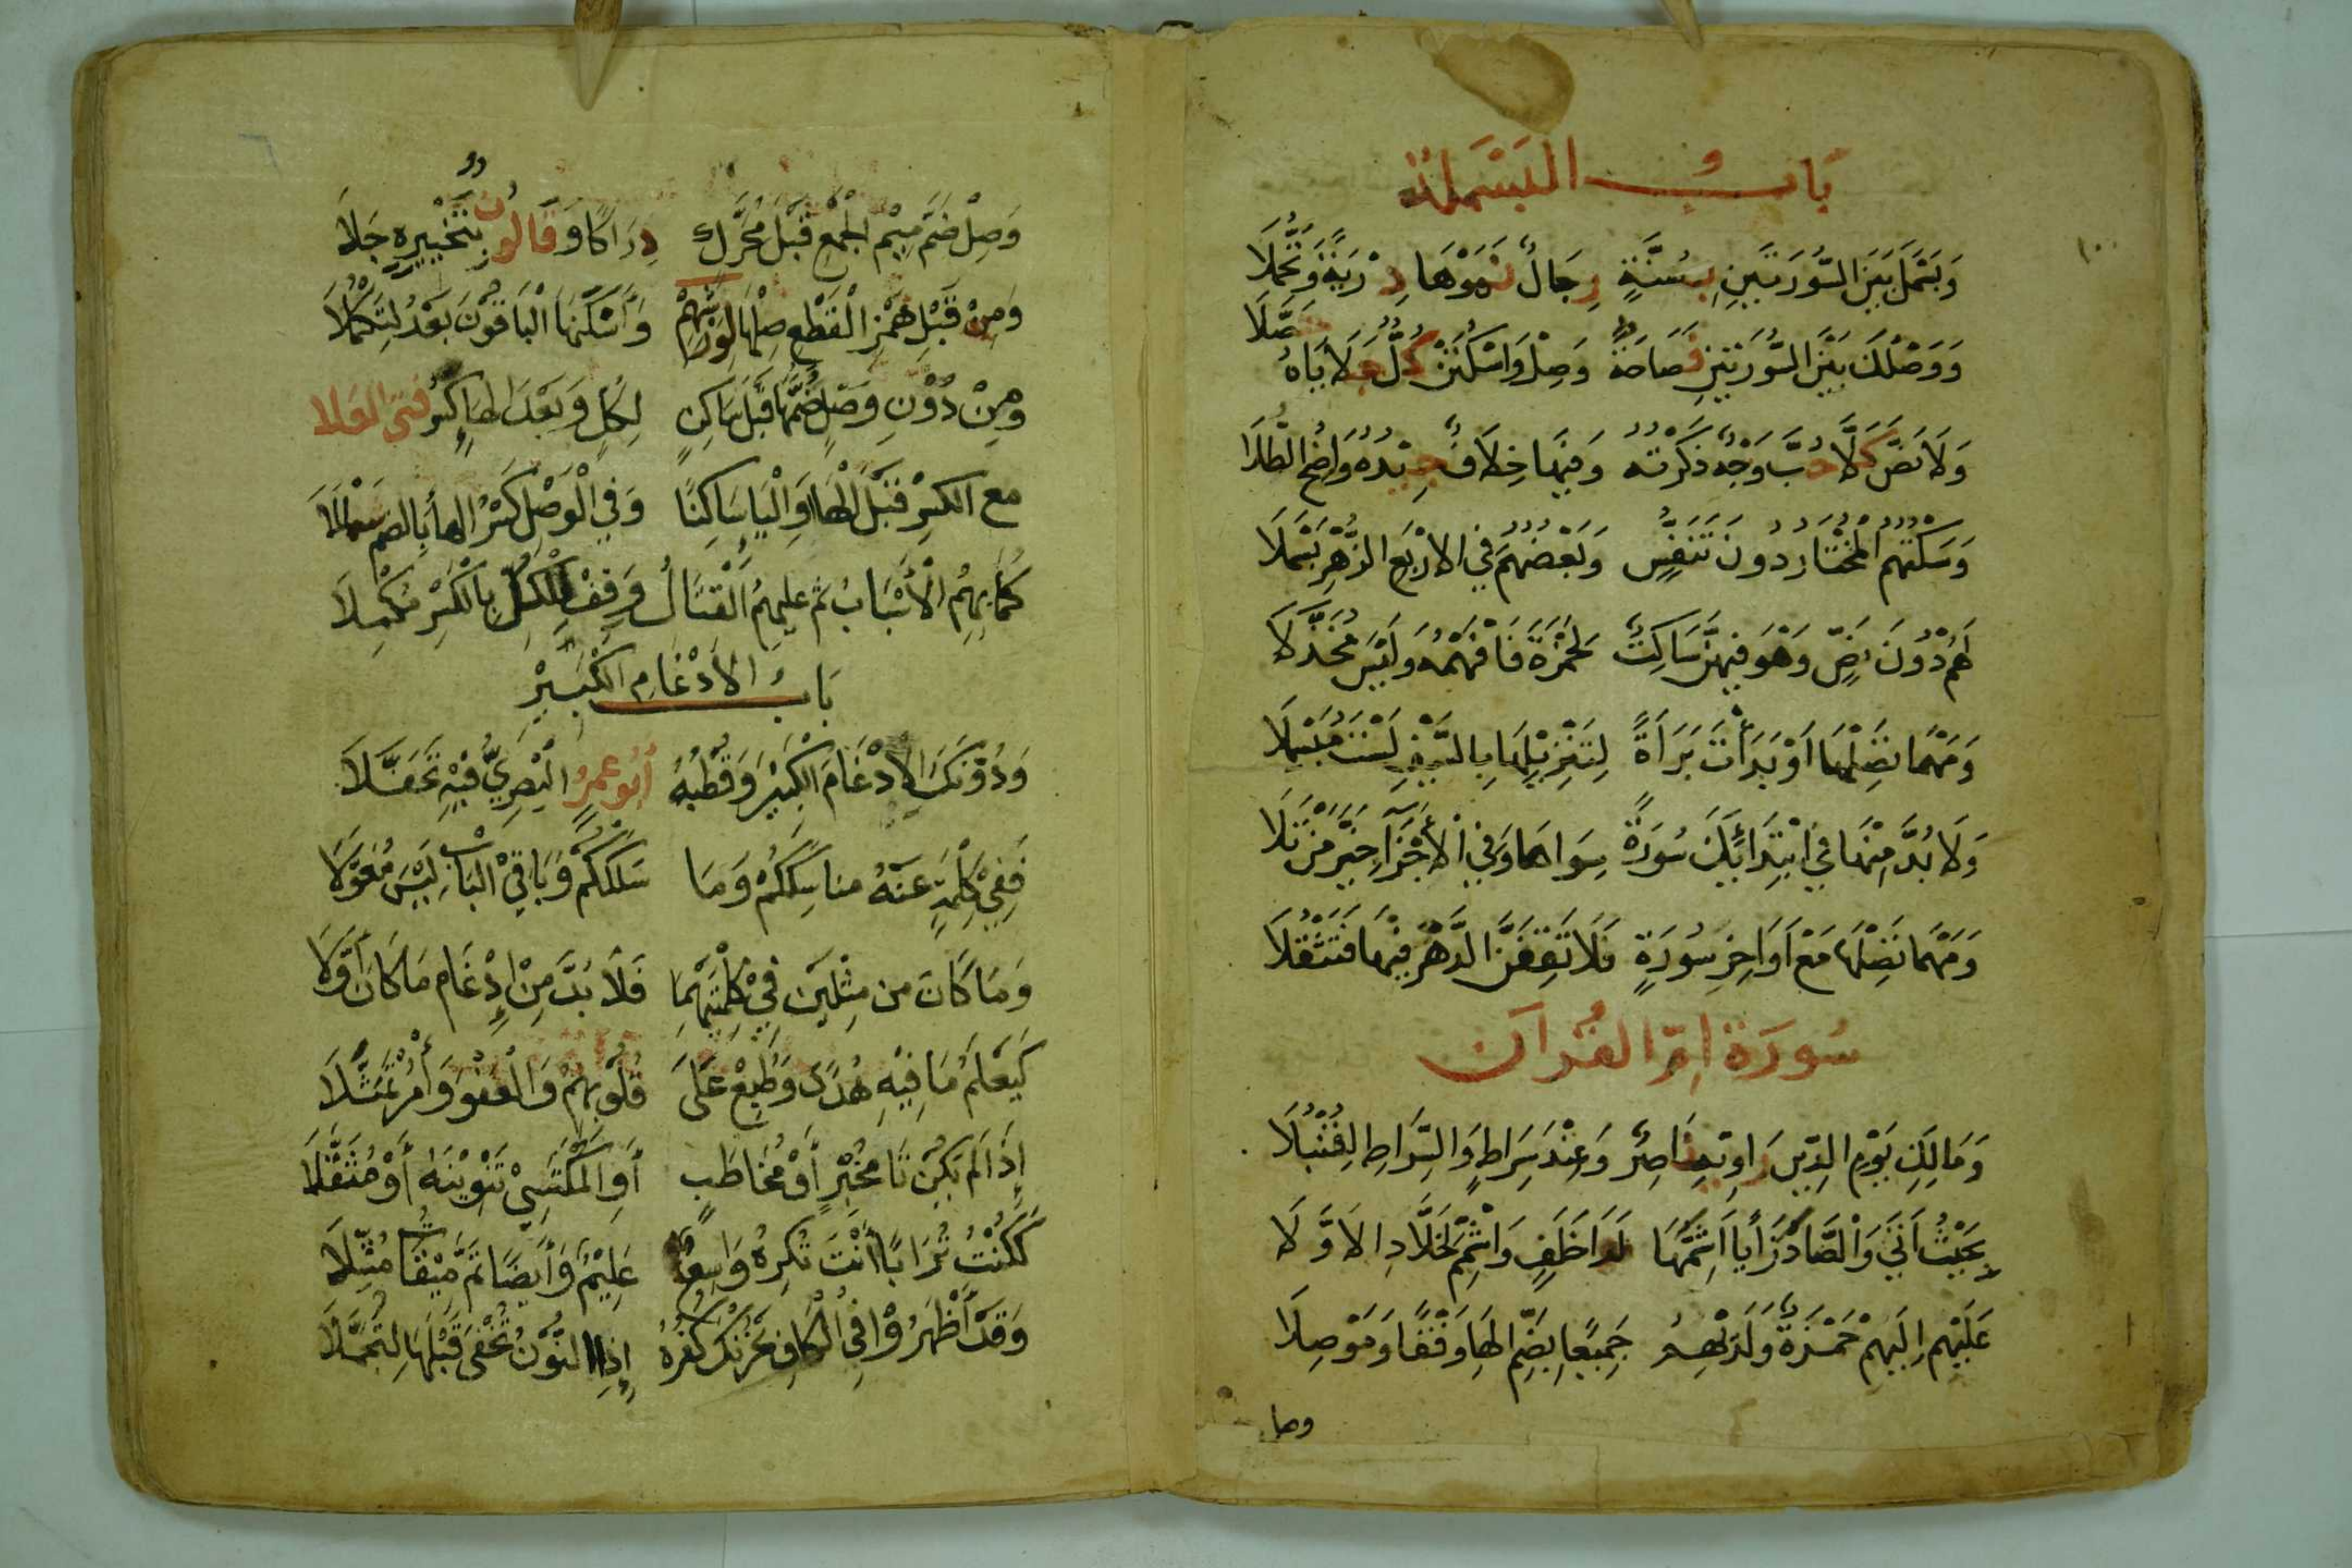 بَابُ الْبَسْمَلَة
وَبَسْمَلَ بَيْنَ السُّورَتَيْنِ بِسُنَّةٍ رِجَالٌ نَمَوْهَا دِرْيَةً وَتَحَمُّلَا
وَوَصْلُكَ بَيْنَ السُّورَتَيْنِ فَصَاحَةٌ وَصِلْ وَاسْكُتَنْ كُلٌّ جَلَايَاهُ حَصَّلَا
وَلَا نَصَّ كَلَّا حُبَّ وَجْهٌ ذَكَرْتُهُ وَفِيهَا خِلَافٌ جِيدُهُ وَاضِحُ الطُّلَا
وَسَكْتُهُمُ الْمُخْتَارُ دُونَ تَنَفُّسٍ وَبَعْضُهُمُ فِي الْأَرْبَعِ الزُّهْرِ بَسْمَلَا
لَهُمْ دُونَ نَصٍّ وَهْوَ فِيهِنَّ سَاكِتٌ لِحَمْزَةَ فَافْهَمْهُ وَلَيْسَ مُخَذَّلَا
وَمَهْمَا تَصِلْهَا أَوْ بَدَأْتَ بَرَاءَةً لِتَنْزِيلِهَا بِالسَّيْفِ لَسْتَ مُبَسْمِلَا
وَلَا بُدَّ مِنْهَا فِي ابْتِدَائِكَ سُورَةً سِوَاهَا وَفِي الْأَجْزَا خَيَّرَ مَنْ تَلَا
وَمَهْمَا تَصِلْهَا مَعْ أَوَاخِرِ سُورَةٍ فَلَا تَقِفَنَّ الدَّهْرَ فِيهَا فَتَثْقُلَا
سُورَة أُمِّ الْقُرْآن
وَمَالِكِ يَوْمِ الدِّينِ رَاوِيهِ نَاصِرٌ وَعِنْدَ سِرَاطٍ وَالسِّرَاطِ لِقُنْبُلَا
بِحَيْثُ أَتَى وَالصَّادَ زَايًا أَشِمَّهَا لَدَى خَلَفٍ وَاشْمِمْ لِخَلَّادِ الَاوَّلَا
عَلَيْهِمْ إِلَيْهِمْ حَمْزَةٌ وَلَدَيْهِمُ جَمِيعًا بِضَمِّ الْهَا وَقْفًا وَمَوْصِلَا
وصل
وَصِلْ ضَمَّ مِيمِ الْجَمْعِ قَبْلَ مُحَرَّكٍ دِرَاكًا وَقَالُونٌ بِتَخْيِيرِهِ جَلَا
وَمِنْ قَبْلِ هَمْزِ الْقَطْعِ صِلْهَا لِوَرْشِهِمْ وَأَسْكَنَهَا الْبَاقُونَ بَعْدُ لِتَكْمُلَا
وَمِنْ دُونِ وَصْلٍ ضُمَّهَا قَبْلَ سَاكِنٍ لِكُلٍّ وَبَعْدَ الْهَاءِ كَسْرُ فَتَى الْعَلَا
مَعَ الْكَسْرِ قَبْلَ الْهَا أَوِ الْيَا سَاكِنًا وَفِي الْوَصْلِ كَسْرُ الْهَا بِالضَّمِّ شَمْلَلَا
كَمَا بِهِمُ الْأَسْبَابُ ثُمَّ عَلَيْهِمُ الْقِتَالُ وَقِفْ لِلْكُلِّ بِالْكَسْرِ مُكْمِلَا
بَابُ الْإِدْغَامِ الْكَبِيرِ
وَدُونَكَ الْإِدْغَامَ الْكَبِيرَ وَقُطْبُهُ أَبُو عَمْرٍو الْبَصْرِيُّ فِيهِ تَحَفَّلَا
فَفِي كِلْمَةٍ عَنْهُ مَنَاسِكَكُمْ وَمَا سَلَكَكُمْ وَبَاقِي الْبَابِ لَيْسَ مُعَوَّلَا
وَمَا كَانَ مِنْ مِثْلَيْنِ فِي كِلْمَتَيْهِمَا فَلَا بُدَّ مِنْ إِدْغَامِ مَا كَانَ أَوَّلَا
كَيَعْلَمُ مَا فِيهِ هُدًى وَطُبِعْ عَلَى قُلُوبِهِمُ وَالْعَفْوَ وَأْمُرْ تَمَثَّلَا
إِذَا لَمْ يَكُنْ تَا مُخْبِرٍ أَوْ مُخَاطَبٍ أَوِ الْمُكْتَسِي تَنْوِينَهُ أَوْ مُثَقَّلَا
كَكُنْتُ تُرَابًا أَنْتَ تُكْرِهُ وَاسِعٌ عَلِيمٌ وَأَيْضًا تَمَّ مِيقَاتُ مُثِّلَا
وَقَدْ أَظْهَرُوا فِي الْكَافِ يَحْزُنْكَ كُفْرُهُ إِذِ النُّونُ تُخْفَى قَبْلَهَا لِتُجَمَّلَا